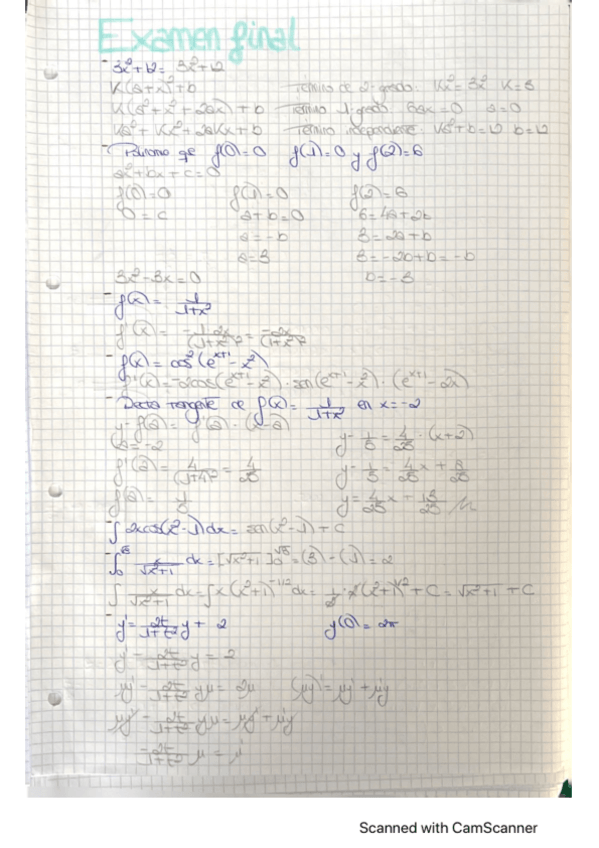 Examen final
- 3x²+12= 3x²+12
K(a+x)²+b Término de 2º grado: Kx²=3x² K=3
K(a²+x²+2ax)+b Término 1º grado 6ax=0 a=0
Ka²+Kx²+2aKx+b Término independiente: Ka²+b=12 b=12
- Polinomio que f(0)=0 f(1)=0 y f(2)=6
ax²+bx+c=0
f(0)=0 f(1)=0 f(2)=6
0=c a+b=0 6=4a+2b
a=-b 3=2a+b
a=3 3=-2b+b=-b
3x²-3x=0 b=-3
- f(x)= 1/(1+x²)
f'(x)= -1·2x/(1+x²)² = -2x/(1+x²)²
- f(x)=cos²(e^(x+1)-x²)
f'(x)=-2cos(e^(x+1)-x²)·sen(e^(x+1)-x²)·(e^(x+1)-2x)
- Recta tangente de f(x)= 1/(1+x²) en x=-2
y-f(a)=f'(a)·(x-a) y-1/5=4/25·(x+2)
a=-2
f'(a)= 4/(1+4)²=4/25 y-1/5=4/25x+8/25
f(a)=1/5 y=4/25x+13/25
- ∫2xcos(x²-1)dx=sen(x²-1)+C
- ∫ x/√(x²+1) dx=[√(x²+1)]=(3)-(1)=2
∫ x/√(x²+1) dx=∫x(x²+1)^(-1/2)dx= 1/2·2(x²+1)^(1/2)+C=√(x²+1)+C
- y'= 2t/(1+t²) y+2 y(0)=2π
y'- 2t/(1+t²) y=2
μy'- 2t/(1+t²) yμ=2μ (μy)'=μy'+μ'y
μy'- 2t/(1+t²) yμ=μy'+μ'y
-2t/(1+t²) μ=μ'
Scanned with CamScanner